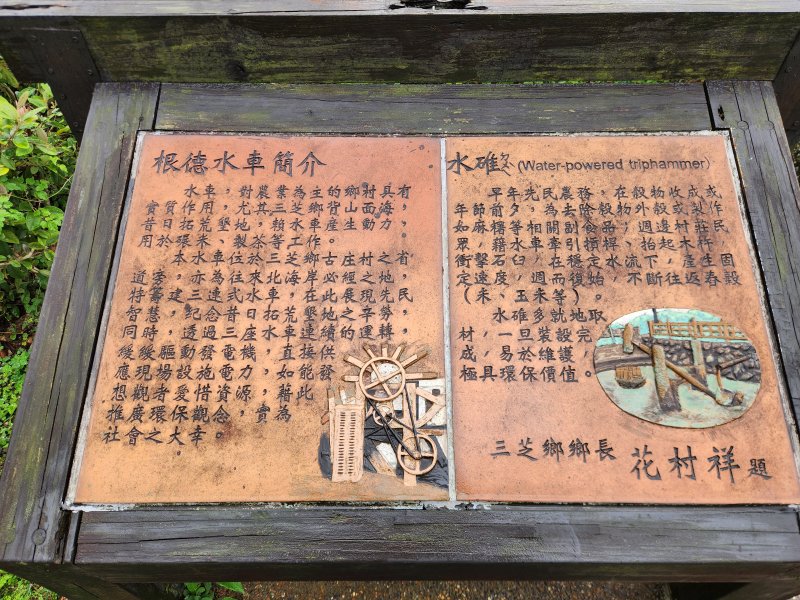 根德水車簡介
水車，對農業為主的鄉村具有，
實質作用，尤其三芝鄉背山面海，
昔日拓墾地、賴水車產生動力，
用於碾米、製茶等工作。
本水車位於三芝鄉古庄村之省
道旁，亦為往來北海岸必經之地，
特籌建三連式水車，在此展現先民
智慧，紀念昔日拓荒墾地之辛勞，
同時透過三座水車連續的運轉，
緩緩驅動發電機，直接供
應現場設施電力，如能啟發
想觀者愛惜資源，藉此
推廣環保觀念，實為
社會之大幸。
水碓ㄉㄨㄟˋ(Water-powered triphammer)
早年先民農務，在穀物收成或
年節前夕，為去除穀物外殼或製作
如麻糬等相關副食品；週邊村莊民
眾，藉水車牽引槓桿、抬起木杵，
衝擊石臼，在穩定水流下，產生固
定速度，週而復始，不斷往返舂穀
（米、玉米等）。
水碓多就地取
材，一旦裝設完
成，易於維護，
極具環保價值。
三芝鄉鄉長 花村祥 題